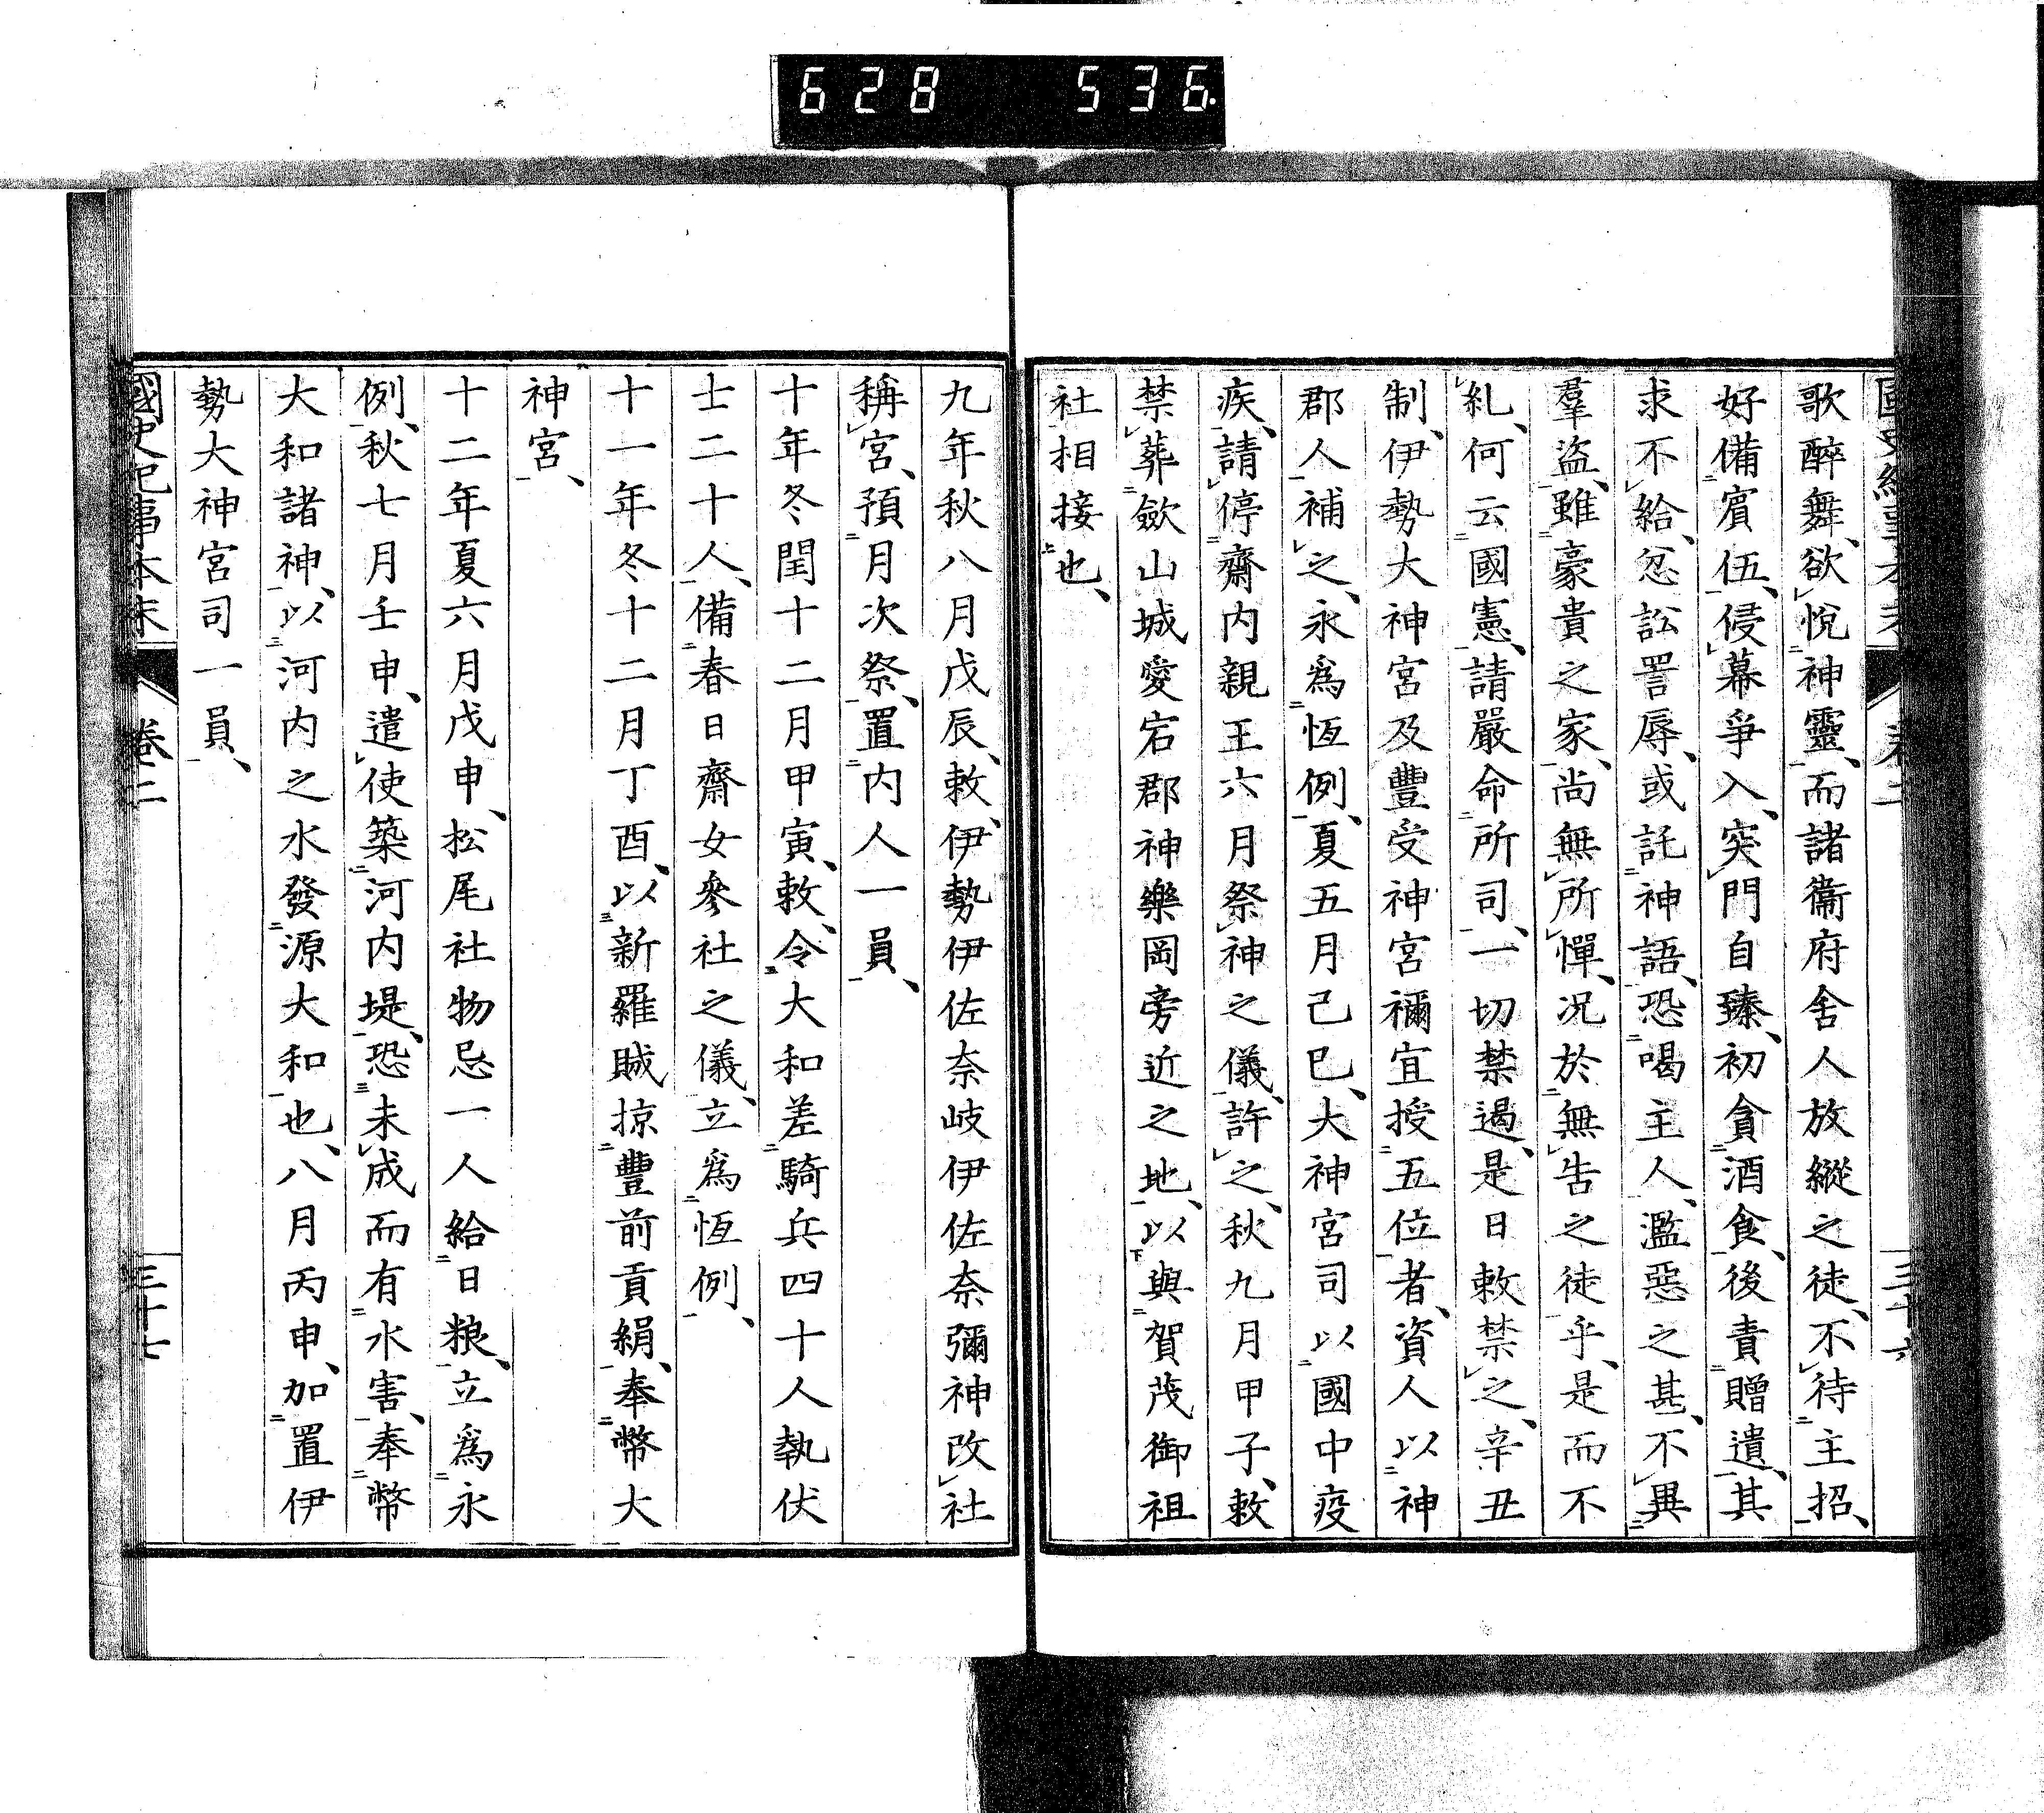 628 536
歌醉舞、欲悅神靈、而諸衞府舍人放縱之徒、不待主招、
好備賓伍、侵幕爭入、突門自臻、初貪酒食、後責贈遺、其
求不給、忿訟詈辱、或託神語、恐喝主人、濫惡之甚、不異
羣盜、雖豪貴之家、尚無所憚、况於無告之徒乎、是而不
糺、何云國憲、請嚴命所司、一切禁遏、是日敕禁之、辛丑
制、伊勢大神宮及豐受神宮禰宜授五位者、資人以神
郡人補之、永爲恆例、夏五月己巳、大神宮司以國中疫
疾、請停齋内親王六月祭神之儀、許之、秋九月甲子、敕
禁葬斂山城愛宕郡神樂岡旁近之地、以與賀茂御祖
社相接也、
九年秋八月戊辰、敕、伊勢伊佐奈岐伊佐奈彌神改社
稱宮、預月次祭、置内人一員、
十年冬閏十二月甲寅、敕、令大和差騎兵四十人執伏
士二十人、備春日齋女參社之儀、立爲恆例、
十一年冬十二月丁酉、以新羅賊掠豐前貢絹、奉幣大
神宮、
十二年夏六月戊申、松尾社物忌一人給日粮、立爲永
例、秋七月壬申、遣使築河内堤、恐未成而有水害、奉幣
大和諸神、以河内之水發源大和也、八月丙申、加置伊
勢大神宮司一員、
國史紀事本末 卷二 三十七